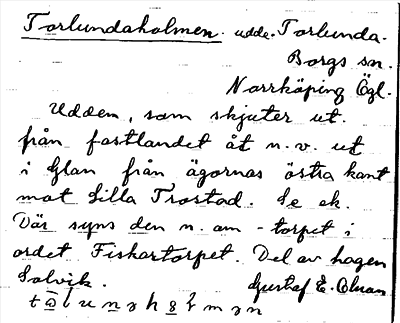 Torlundaholmen. udde. Torlunda.
Borgs sn.
Norrköping Ögl.
Udden, som skjuter ut.
från fastlandet åt n.v. ut
i Glan från ägornas östra kant
mot Lilla Trostad. Se ek.
Där syns den n. om -torpet i
ordet Fiskartorpet. Del av hagen
Solvik. Gustaf E.